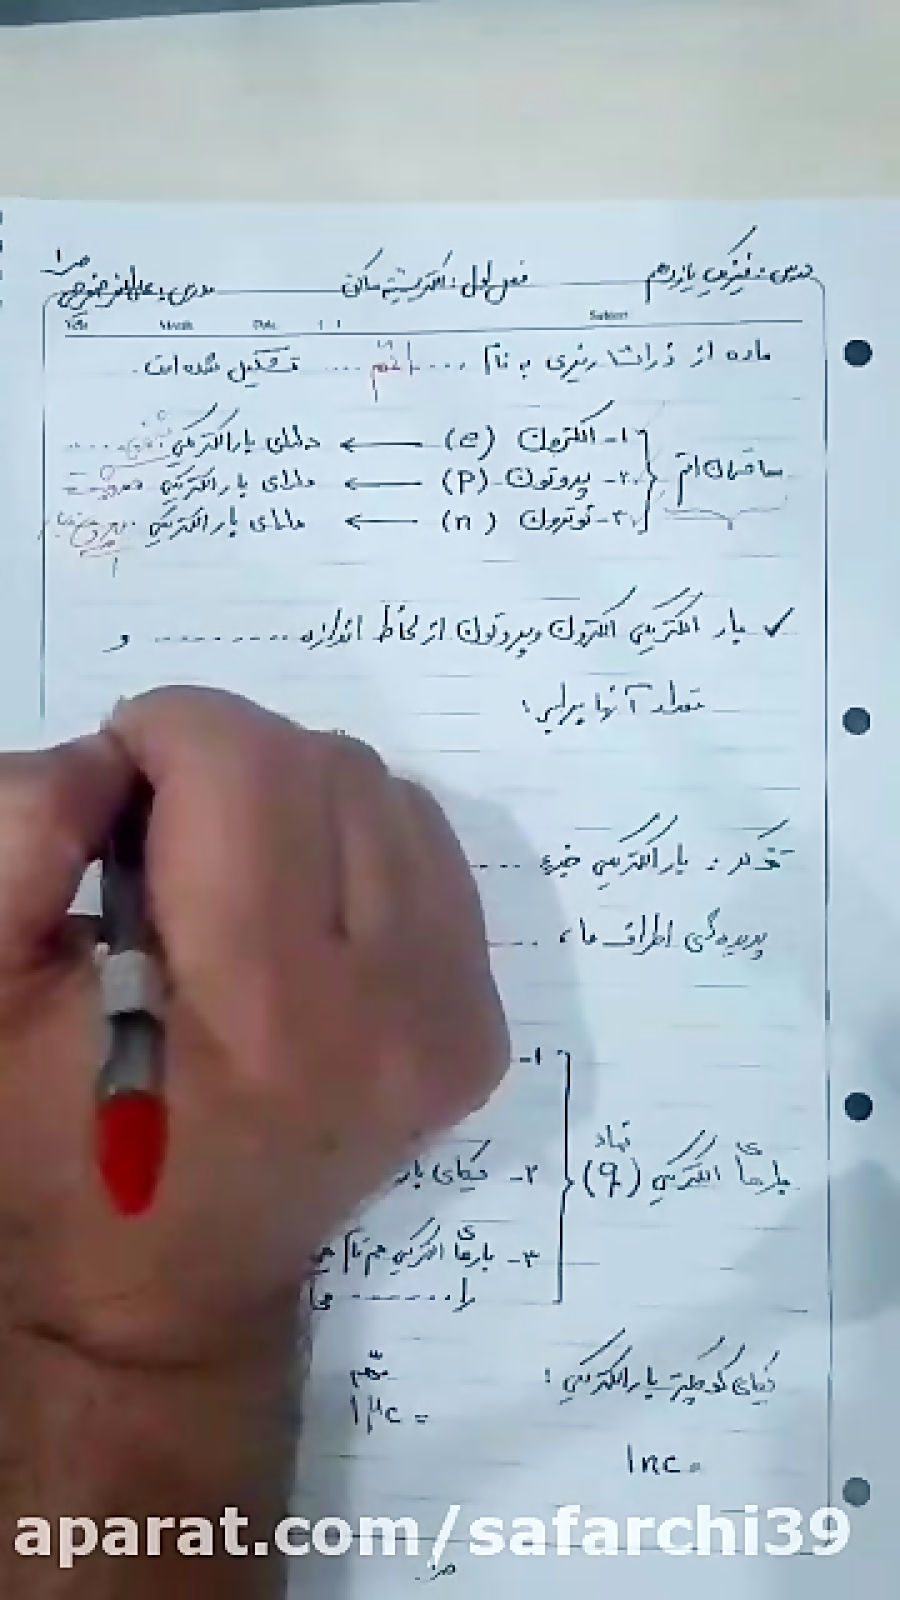 درس: فیزیک یازدهم فصل اول: الکتریسیته ساکن مدرس:
Subject
ماده از ذرات ریزی به نام .... اتم .... تشکیل شده است.
ساختمان اتم
۱- الکترون (e) ← دارای بار الکتریکی منفی
۲- پروتون (P) ← دارای بار الکتریکی مثبت
۳- نوترون (n) ← دارای بار الکتریکی
✓ بار الکتریکی الکترون و پروتون از لحاظ اندازه .......... و
تعداد آنها برابر
تذکر: بار الکتریکی ....
پدیده‌های اطراف ما، ....
بارهای الکتریکی نماد (q)
۱-
۲- یکای بار
۳- بارهای الکتریکی هم نام
را .......
یکای کوچکتر بار الکتریکی:
مهم
۱μc =
۱nc =
aparat.com/safarchi39